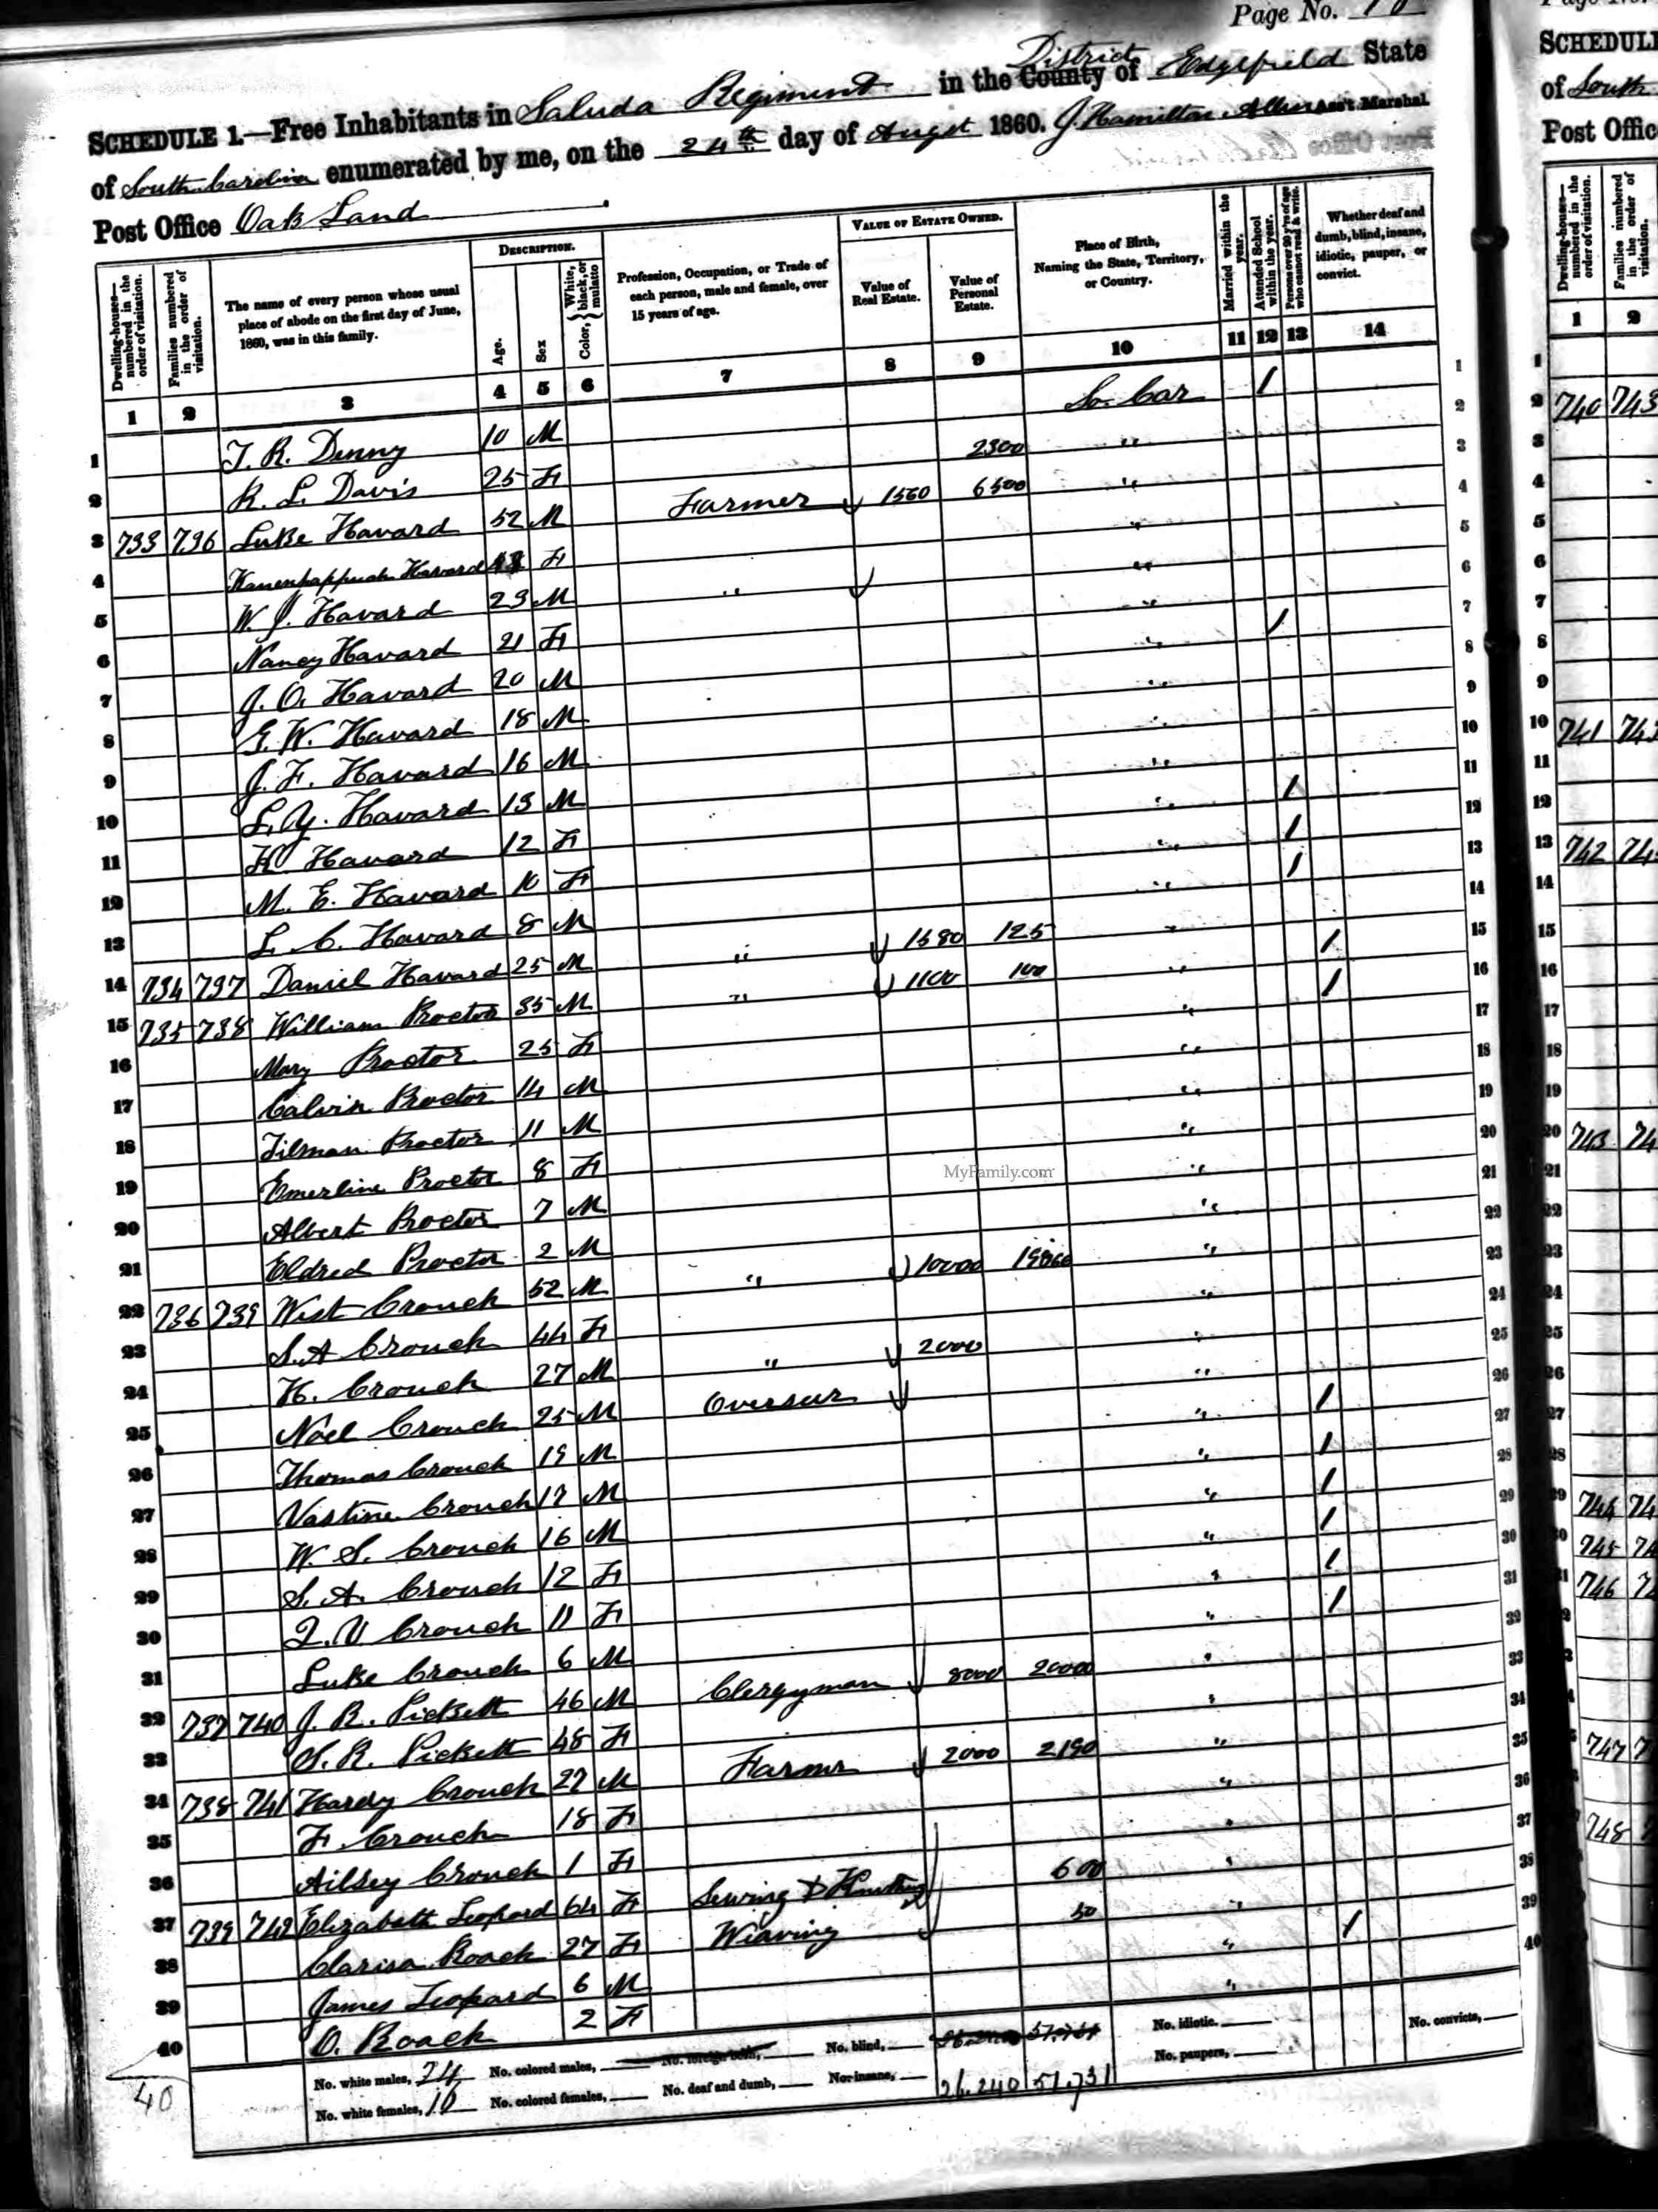 Page No.
SCHEDULE 1.—Free Inhabitants in Saluda Regiment in the County District of Edgefield State
of South Carolina enumerated by me, on the 24th day of Augst 1860. J. Hamilton Allen Ass't Marshal.
Post Office Oak Land
Dwelling-houses—numbered in the order of visitation.
Families numbered in the order of visitation.
The name of every person whose usual place of abode on the first day of June, 1860, was in this family.
DESCRIPTION.
Age.
Sex
Color, { White, black, or mulatto
Profession, Occupation, or Trade of each person, male and female, over 15 years of age.
VALUE OF ESTATE OWNED.
Value of Real Estate.
Value of Personal Estate.
Place of Birth, Naming the State, Territory, or Country.
Married within the year.
Attended School within the year.
Persons over 20 y'rs of age who cannot read & write.
Whether deaf and dumb, blind, insane, idiotic, pauper, or convict.
1 2 3 4 5 6 7 8 9 10 11 12 13 14
1 T. R. Denny 10 M So. Car / 1
2 R. L. Davis 25 F 2300 " 2
3 733 736 Luke Havard 52 M Farmer 1560 6500 " 3
4 Havard F " 4
5 W. J. Havard 23 M " " 5
6 Nancy Havard 21 F " 6
7 J. O. Havard 20 M / 7
8 G. W. Havard 18 M " 8
9 J. F. Havard 16 M " 9
10 L. Y. Havard 13 M " 10
11 K Havard 12 F " / 11
12 M. E. Havard 10 F " / 12
13 L. C. Havard 8 M " / 13
14 734 737 Daniel Havard 25 M " 1580 125 " 14
15 735 738 William Proctor 35 M " 1100 100 " / 15
16 Mary Proctor 25 F " / 16
17 Calvin Proctor 14 M " 17
18 Tilman Proctor 11 M " 18
19 Emerline Proctor 8 F " 19
20 Albert Proctor 7 M " 20
21 Eldred Proctor 2 M " 21
22 736 739 West Crouch 52 M " 10000 " 22
23 S. A Crouch 44 F " 23
24 H. Crouch 27 M " 2000 " 24
25 Noel Crouch 25 M Overseer " 25
26 Thomas Crouch 19 M " / 26
27 Vastine Crouch 17 M " / 27
28 W. S. Crouch 16 M " / 28
29 S. A. Crouch 12 F " / 29
30 Q. V Crouch 11 F " / 30
31 Luke Crouch 6 M " / 31
32 737 740 J. R. Pickett 46 M Clergyman 8000 20000 " 32
33 S. R. Pickett 48 F " 33
34 738 741 Hardy Crouch 27 M Farmr 2000 2190 " 34
35 F. Crouch 18 F " 35
36 Ailsey Crouch 1 F " 36
37 739 742 Elizabeth Leopard 64 F Sewing & 600 " 37
38 Clarisa Roach 27 F Weaving 50 " / 38
39 James Leopard 6 M " 39
40 O. Roach 2 F " 40
No. white males, 24 No. colored males, No. foreign born, No. blind, No. idiotic. No. convicts,
No. white females, No. colored females, No. deaf and dumb, No. insane, 26.240 51.731 No. paupers,
40
MyFamily.com
SCHEDULE
of South
Post Offic
Dwelling-houses—numbered in the order of visitation.
Families numbered in the order of visitation.
1 2
740 743
741
742
743
744
745
746
747
748